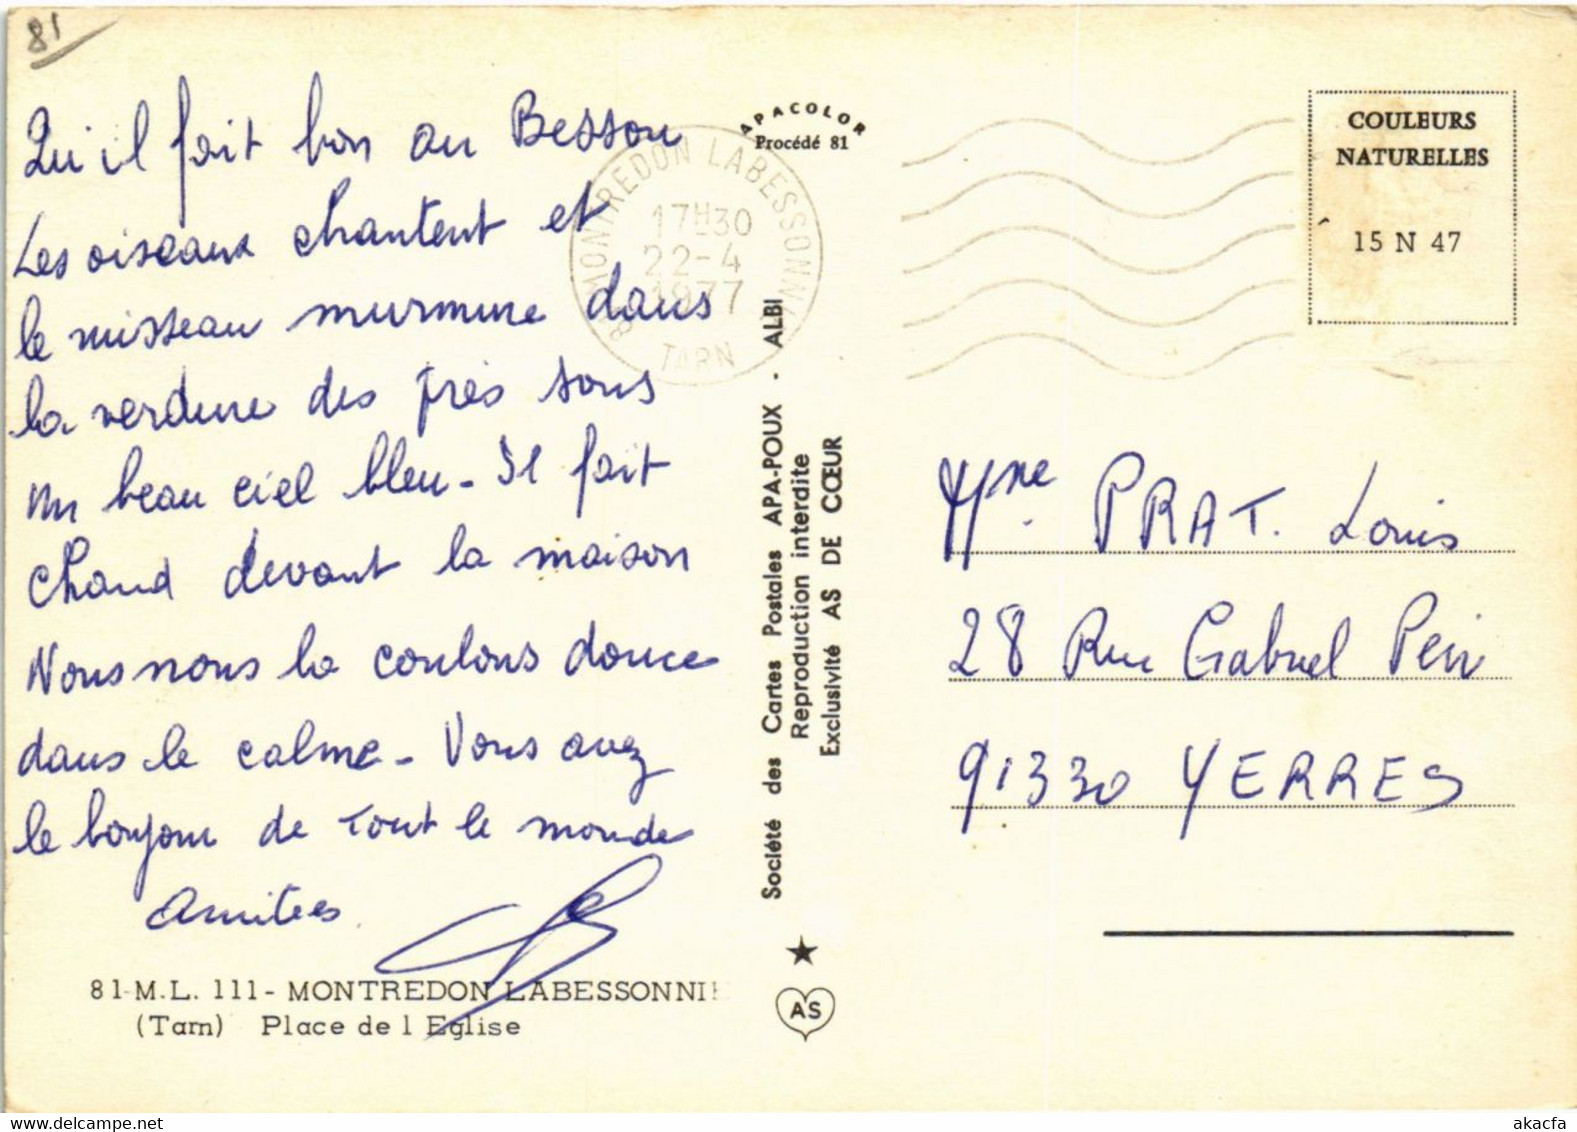 81
Qu'il fait bon au Bessou
Les oiseaux chantent et
le ruisseau murmure dans
la verdure des près sous
un beau ciel bleu - Il fait
chaud devant la maison
Nous nous la coulons douce
dans le calme - Vous avez
le bonjour de tout le monde
Amitiés
81-M.L. 111 - MONTREDON LABESSONNIE
(Tarn) Place de l Eglise
APACOLOR
Procédé 81
81 MONTREDON LABESSONNIE
17H30
22-4
1977
TARN
Société des Cartes Postales APA-POUX - ALBI
Reproduction interdite
Exclusivité AS DE CŒUR
AS
COULEURS
NATURELLES
15 N 47
Mme PRAT. Louis
28 Rue Gabriel Péri
91330 YERRES
akacfa